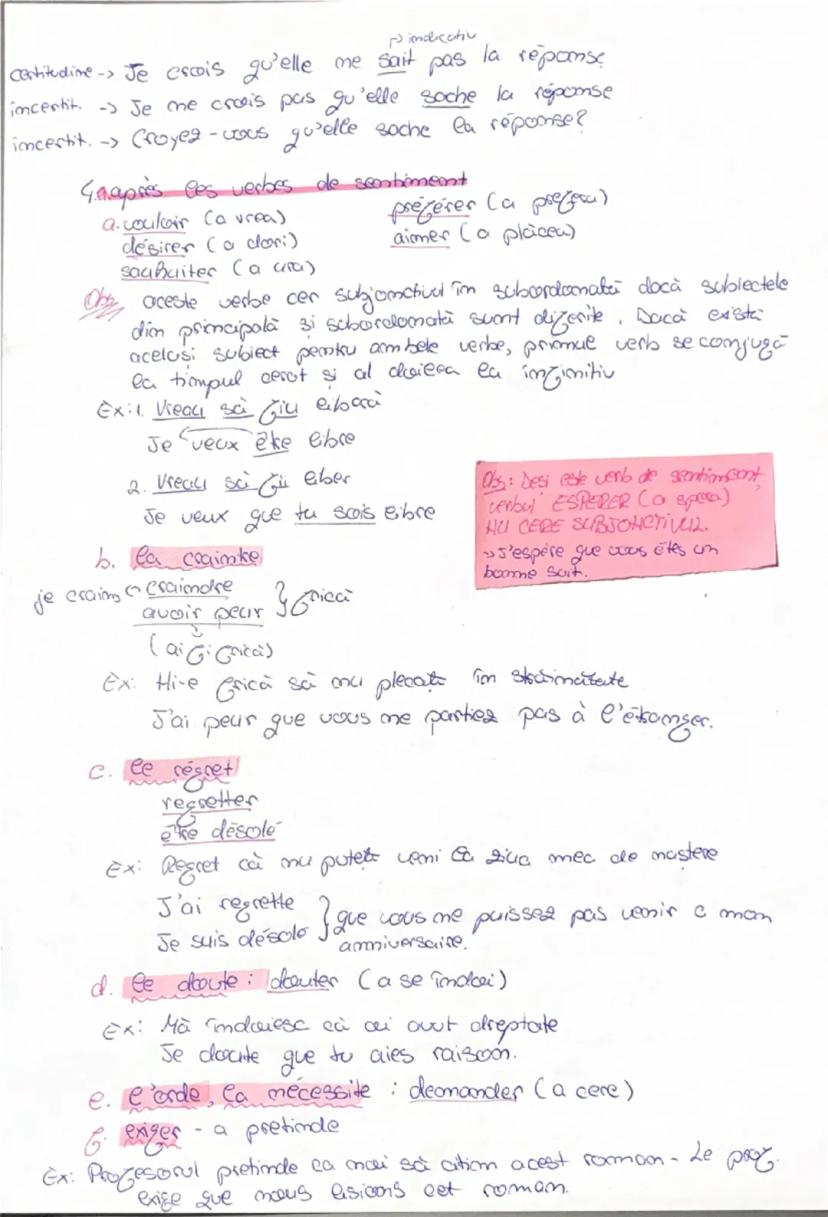 ↱ indicativ
certitudine -> Je crois qu'elle ne sait pas la réponse
incertit. -> Je ne crois pas qu'elle sache la réponse
incertit. -> Croyez-vous qu'elle sache la réponse?
4. après les verbes de sentiment
a. vouloir (a vrea)
désirer (a dori)
souhaiter (a ura)
préférer (a prefera)
aimer (a plăcea)
Obs aceste verbe cer subjonctivul în subordonată dacă subiectele
din principală și subordonată sunt diferite. Dacă există
același subiect pentru ambele verbe, primul verb se conjugă
la timpul cerut și al doilea la infinitiv
Ex: 1. Vreau să fiu liberă
Je veux être libre
2. Vreau să fii liber
Je veux que tu sois libre
Obs: Deși este verb de sentiment,
verbul ESPERER (a spera)
NU CERE SUBJONCTIVUL.
-> J'espère que vous êtes un
bonne soit.
b. la crainte
je crains <- craindre
avoir peur } frică
(a-i fi frică)
Ex: Mi-e frică să nu plecați în străinătate
J'ai peur que vous ne partiez pas à l'étranger.
c. le régret
regretter
être désolé
Ex: Regret că nu puteți veni la ziua mea de naștere
J'ai regrette
Je suis désolé } que vous ne puissez pas venir a mon
anniversaire.
d. le doute: douter (a se îndoi)
Ex: Mă îndoiesc că ai avut dreptate
Je doute que tu aies raison.
e. l'orde, la nécessite: demander (a cere)
f. exiger - a pretinde
Ex: Profesorul pretinde ca noi să citim acest roman - Le prof.
exige que nous lisions cet roman.